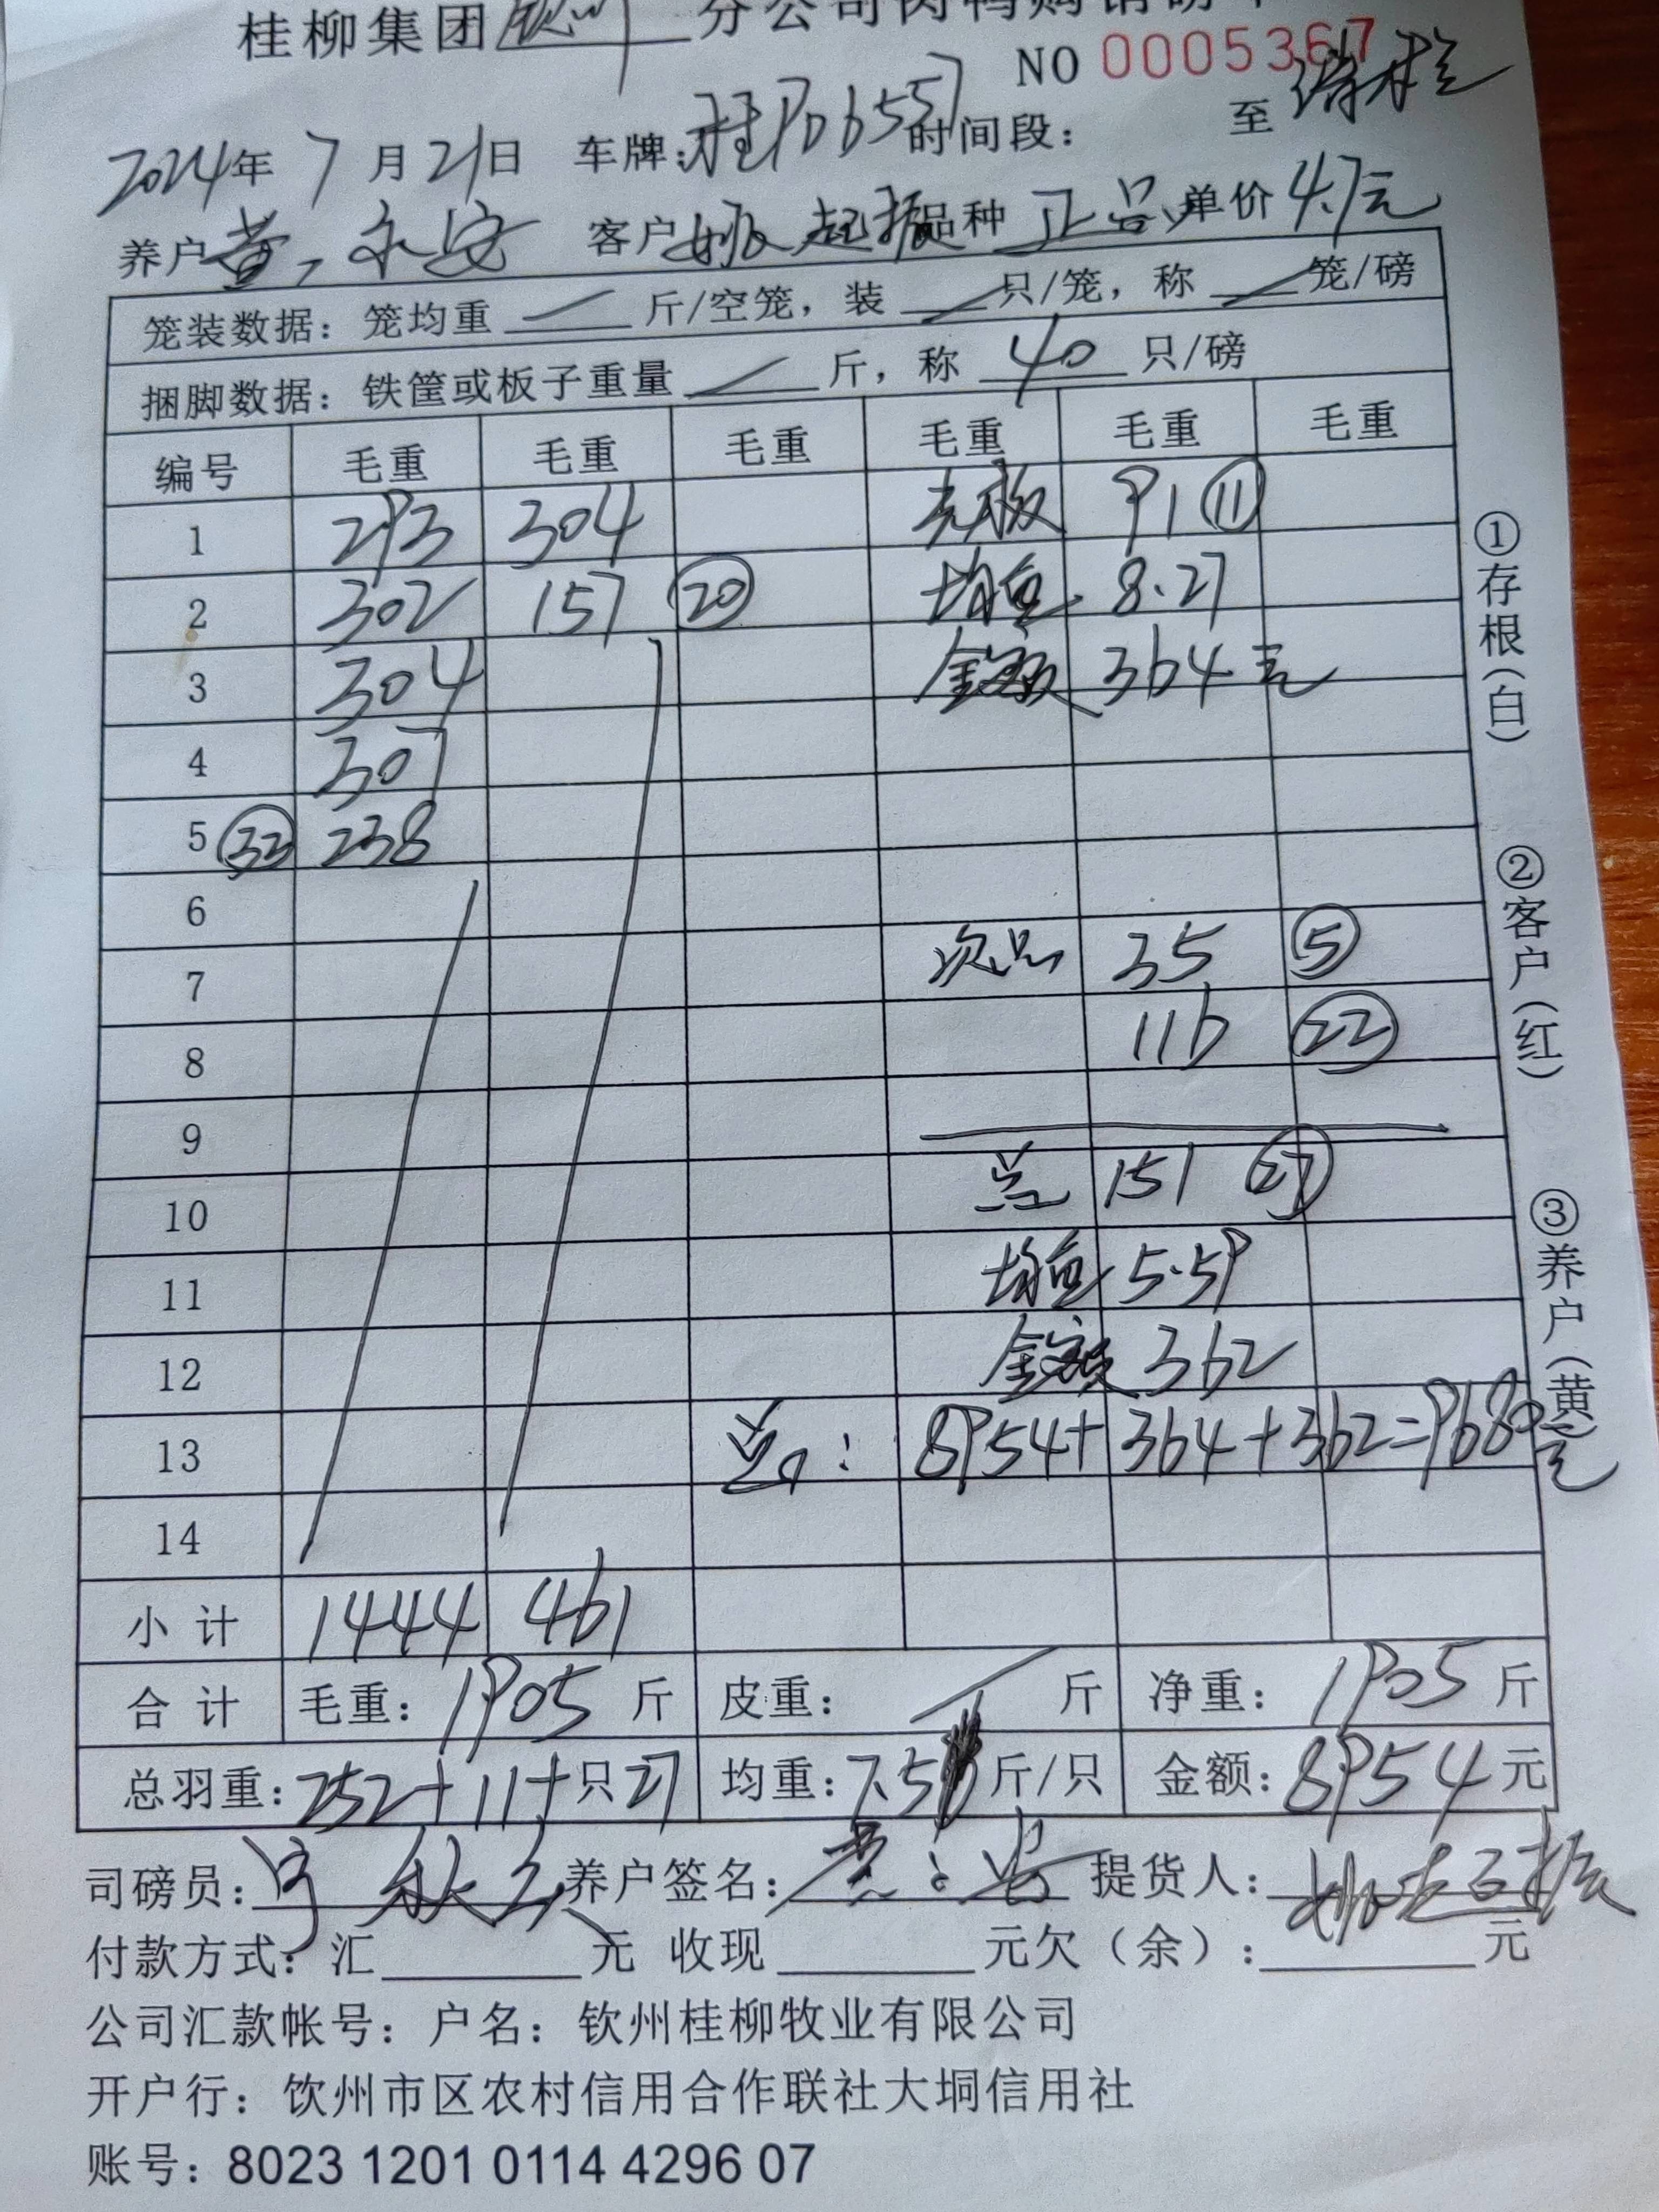 桂柳集团钦州分公司肉鸭购销磅单
NO 0005367
2024年 7 月 21日 车牌:桂PD6557 时间段: 至
养户 黄永安 客户 姚起振 品种 正品 单价 4.7元
笼装数据: 笼均重 斤/空笼, 装 只/笼, 称 笼/磅
捆脚数据: 铁筐或板子重量 斤, 称 40 只/磅
编号 毛重 毛重 毛重 毛重 毛重 毛重
1 293 304 91 ⑪
2 302 157 ⑳ 均重 8.27
3 304 金额 364元
4 307
5 ㉜ 238
6
7 次品 35 ⑤
8 116 ㉒
9
10 总 151 ㉗
11 均重 5.59
12 金额 362
13 总: 8954+364+362=9680元
14
小 计 1444 461
合 计 毛重: 1905 斤 皮重: 斤 净重: 1905 斤
总羽重: 252+11+只27 均重: 7.5 斤/只 金额: 8954元
司磅员: 养户签名: 提货人: 姚起振
付款方式: 汇 元 收现 元欠(余): 元
公司汇款帐号: 户名: 钦州桂柳牧业有限公司
开户行: 饮州市区农村信用合作联社大垌信用社
账号: 8023 1201 0114 4296 07
①存根(白)
②客户(红)
③养户(黄)